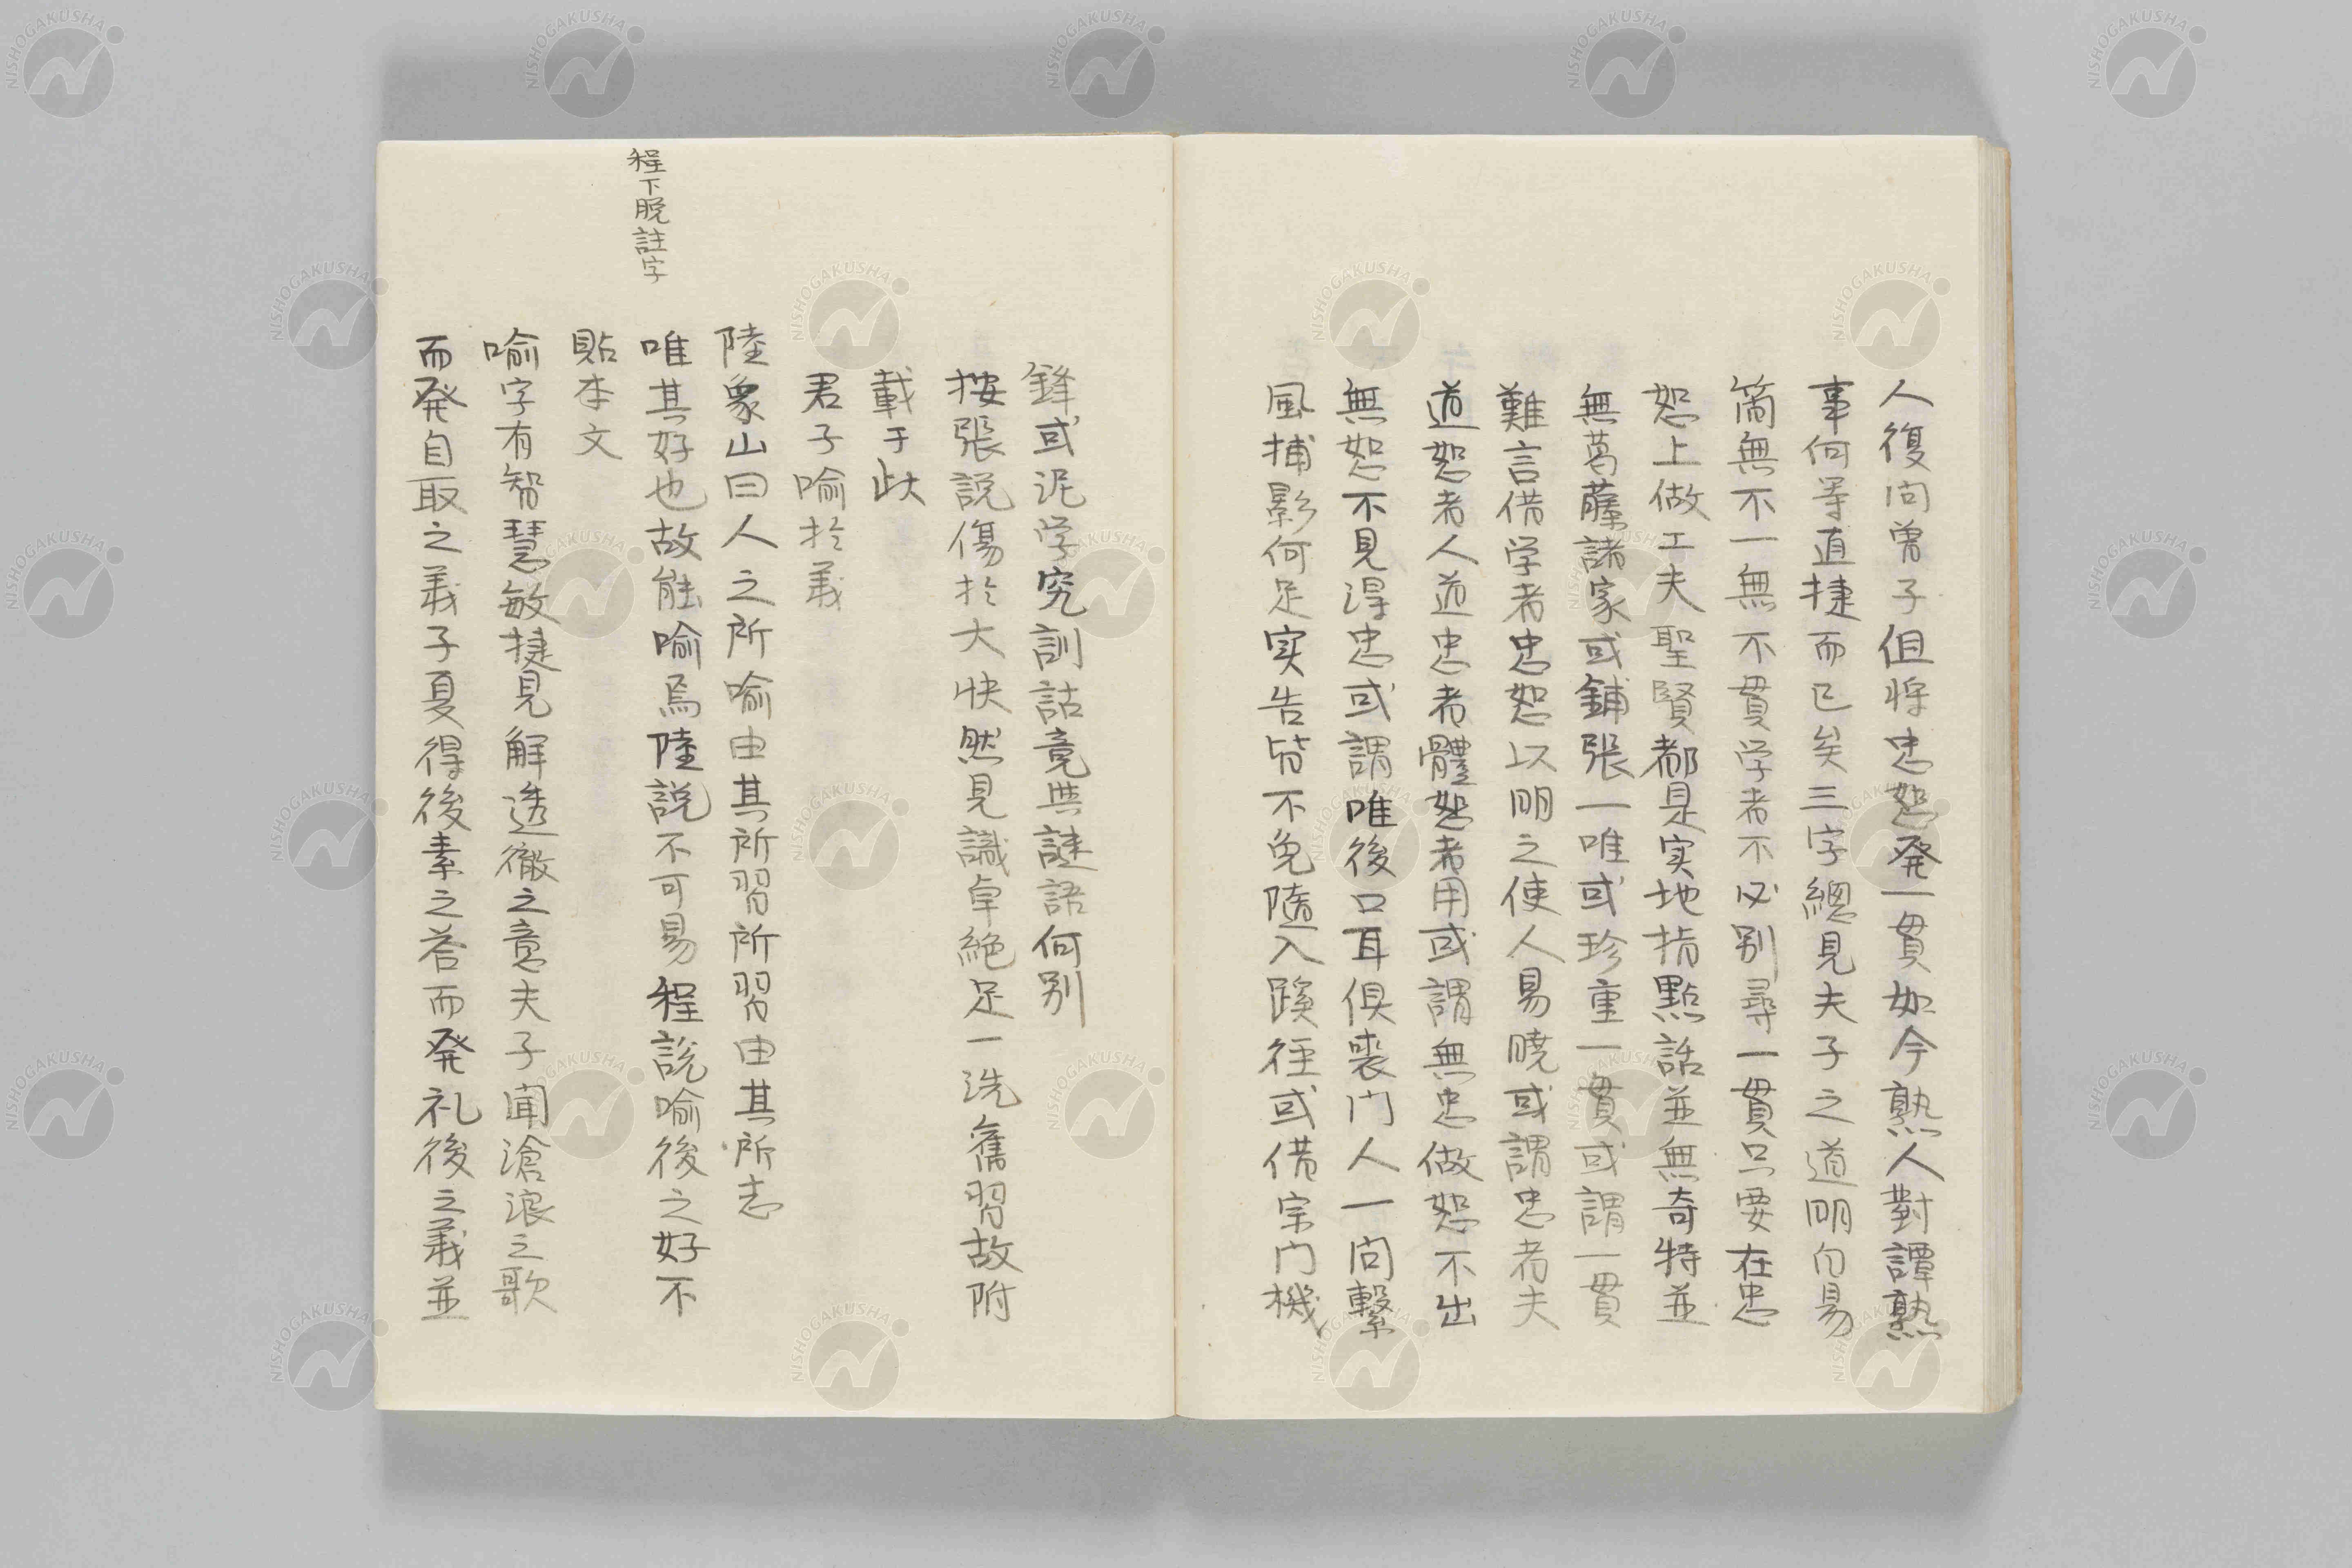 人復問曽子但将忠恕発一貫如今熟人對譚熟
事何等直捷而已矣三字總見夫子之道明白易
簡無不一無不貫学者不必别尋一貫只要在忠
恕上做工夫聖賢都是実地指點話並無奇特並
無葛藤諸家或鋪張一唯或珍重一貫或謂一貫
難言借学者忠恕以明之使人易暁或謂忠者夫
道恕者人道忠者體恕者用或謂無忠做恕不出
無恕不見得忠或謂唯後口耳俱喪門人一問繫
風捕影何足実告皆不免隨入蹊径或借宗門機
鋒或泥学究訓詁竟與謎語何别
按張説傷於大快然見識卓絶足一洗舊習故附
載于此
君子喻於義
陸象山曰人之所喻由其所習所習由其所志
唯其好也故能喻焉陸説不可易程説喻後之好不
貼本文
喻字有智慧敏捷見解透徹之意夫子聞滄浪之歌
而発自取之義子夏得後素之答而発礼後之義並
程下脱註字